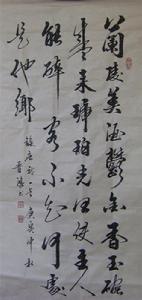 蘭陵美酒鬱金香玉碗
盛來琥珀光但使主人
能醉客不知何處
是他鄉
錄唐詩一首庚寅仲秋